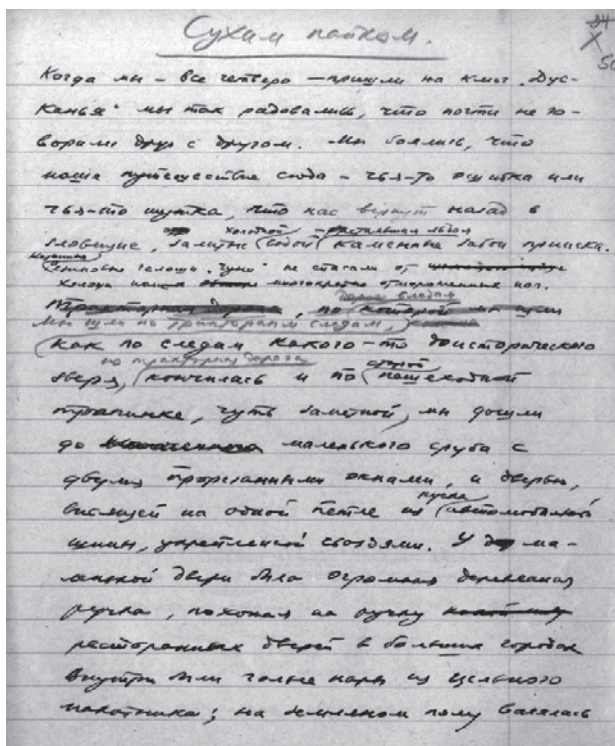 Сухим пайком.
Когда мы – все четверо – пришли на ключ „Дус-
канья“ мы так радовались, что почти не го-
ворили друг с другом. Мы боялись, что
наше путешествие сюда – чья-то ошибка или
чья-то шутка, что нас вернут назад в
зловещие, залитые холодной водой – растаявшим льдом каменные забои прииска.
Казенные резиновые галоши, „чуни“ не спасали от
холода наши многократно отмороженные ног.
Мы шли по тракторным следам,
как по следам какого-то доисторического
зверя, но тракторная дорога кончилась и по старой пешеходной
тропинке, чуть заметной, мы дошли
до маленького сруба с
двумя прорезанными окнами, и дверью,
висящей на одной петле из куска автомобильной
шины, укрепленной гвоздями. У ма-
ленькой двери была огромная деревянная
ручка, похожая на ручку
ресторанных дверей в больших городах
Внутри были голые нары из цельного
накатника; на земляном полу валялась